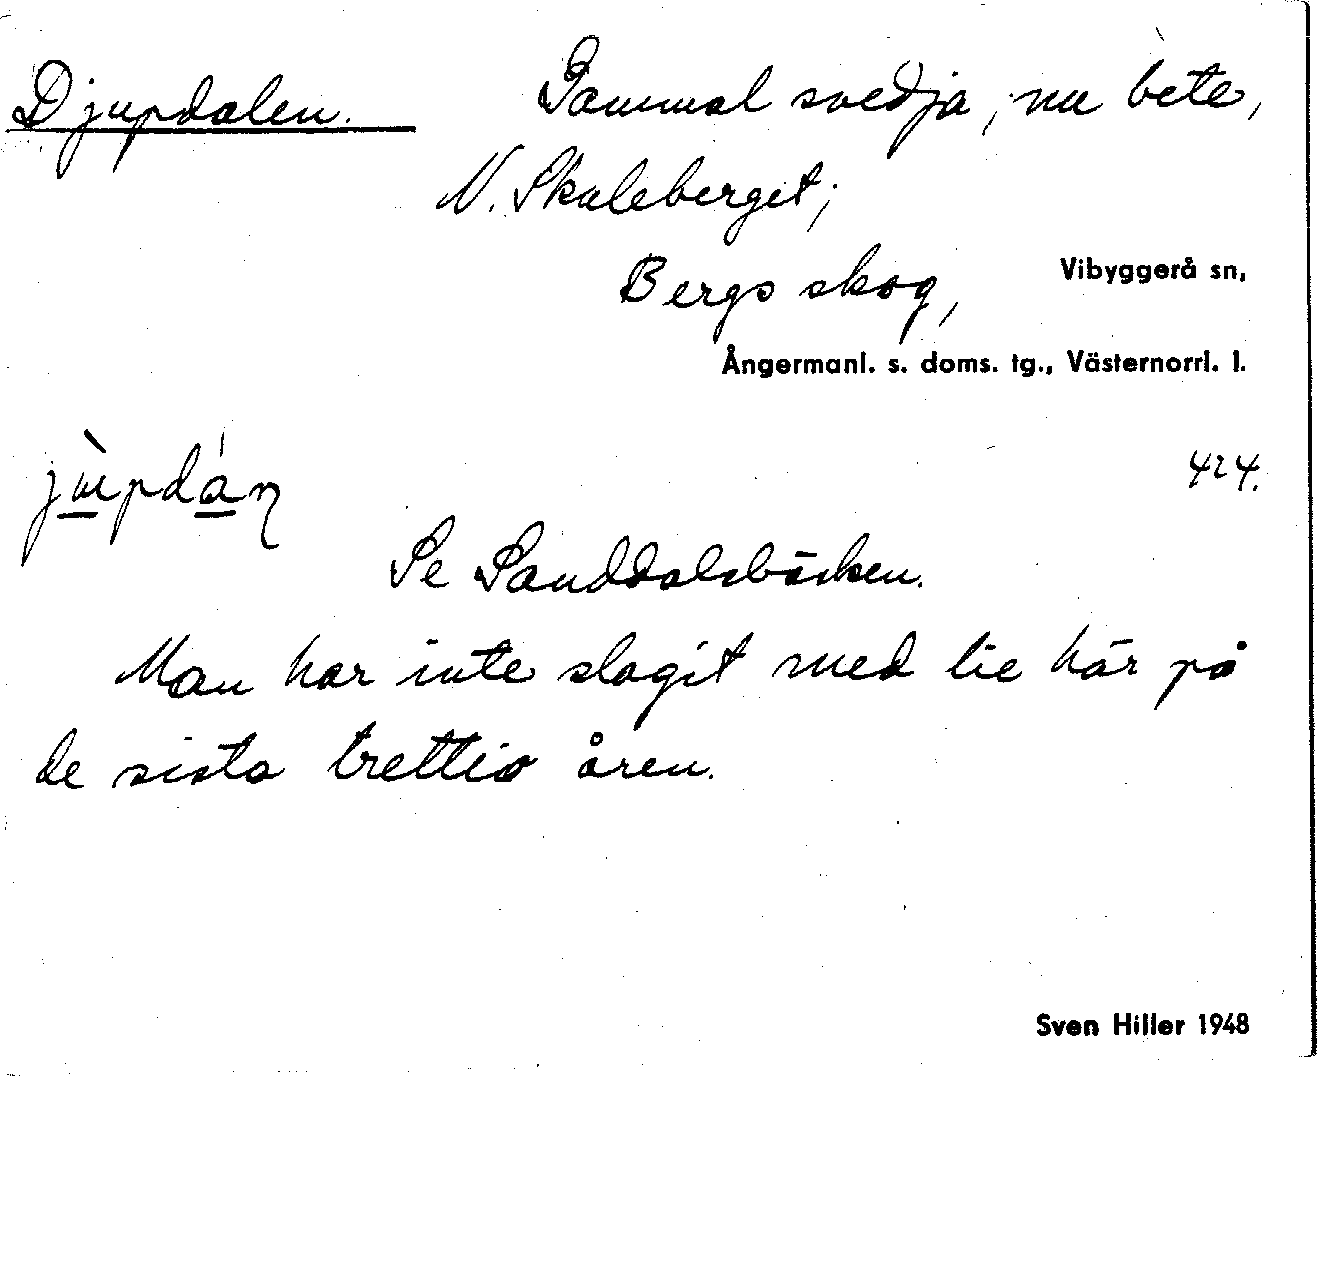 Djupdalen. Gammal svedja, nu bete,
N. Skuleberget;
Bergs skog, Vibyggerå sn,
Ångermanl. s. doms. tg., Västernorrl. l.
jùpdán 424.
Se Sanddalsbäcken.
Man har inte slagit med lie här på
de sista trettio åren.
Sven Hiller 1948